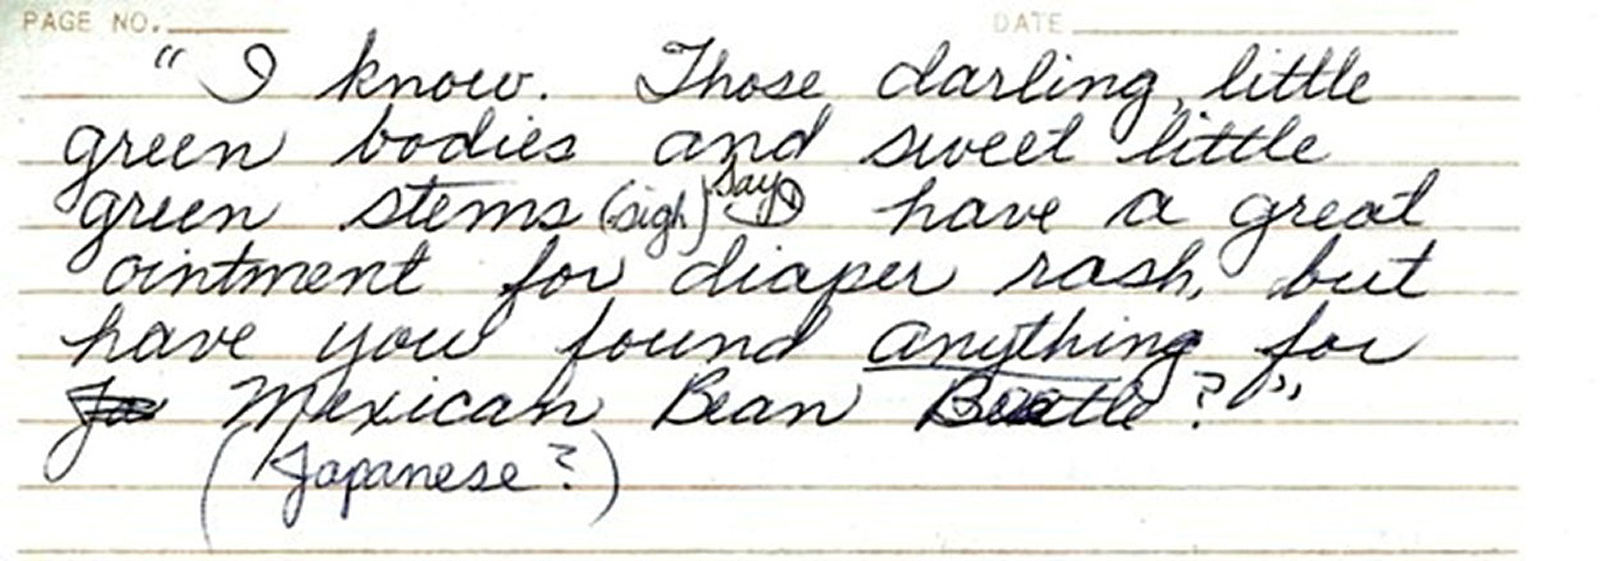 PAGE NO. DATE
" I know. Those darling, little
green bodies and sweet little
green stems (sigh) say I have a great
ointment for diaper rash, but
have you found anything for
Mexican Bean Beetle? "
(Japanese?)